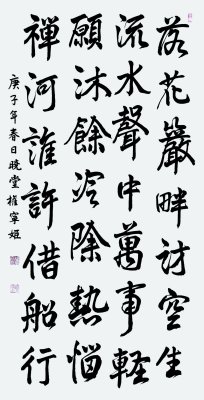 落花巖畔訪空生
流水聲中萬事軽
願沐餘冷除熱惱
禪河誰許借船行
庚子年春日曉堂權寧姬